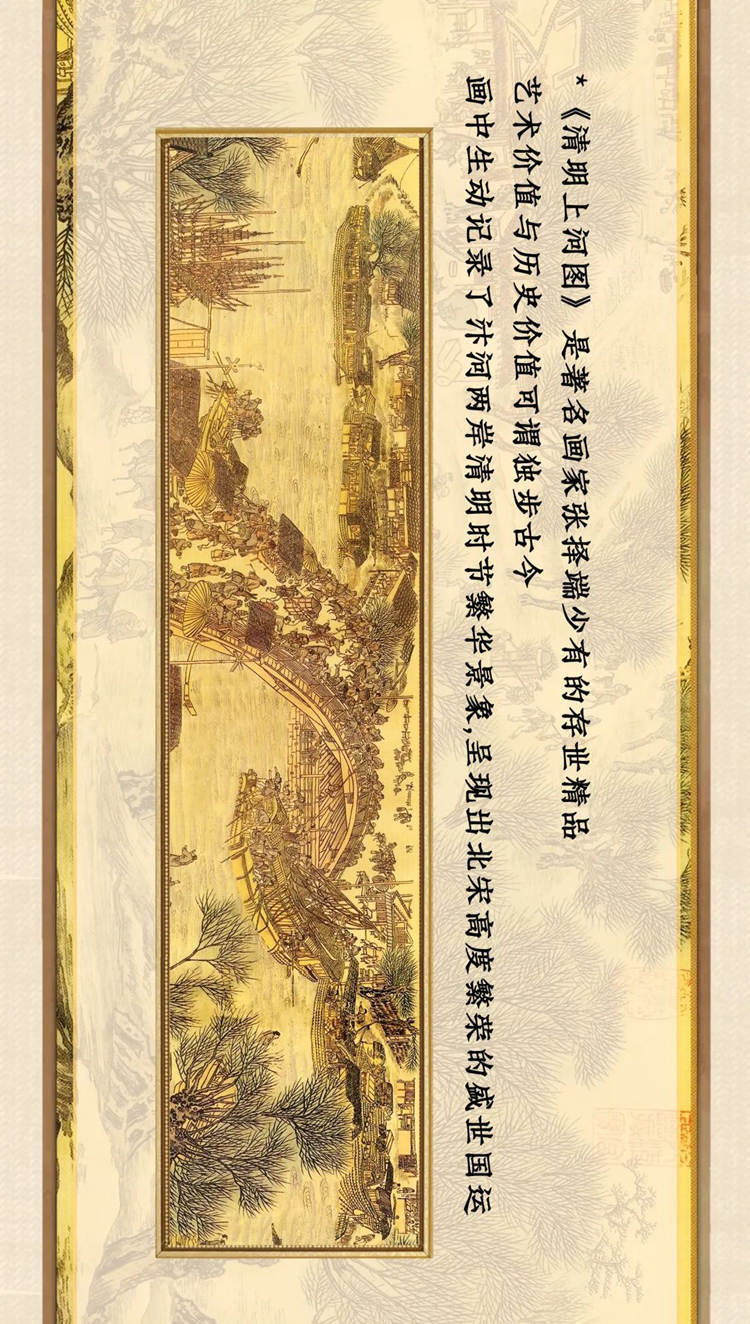 *《清明上河图》是著名画家张择端少有的存世精品
艺术价值与历史价值可谓独步古今
画中生动记录了汴河两岸清明时节繁华景象,呈现出北宋高度繁荣的盛世国运